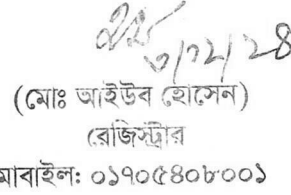 ৩/১২/২৪
(মোঃ আইউব হোসেন)
রেজিস্ট্রার
মাবাইল: ০১৭০৫৪০৮০০১